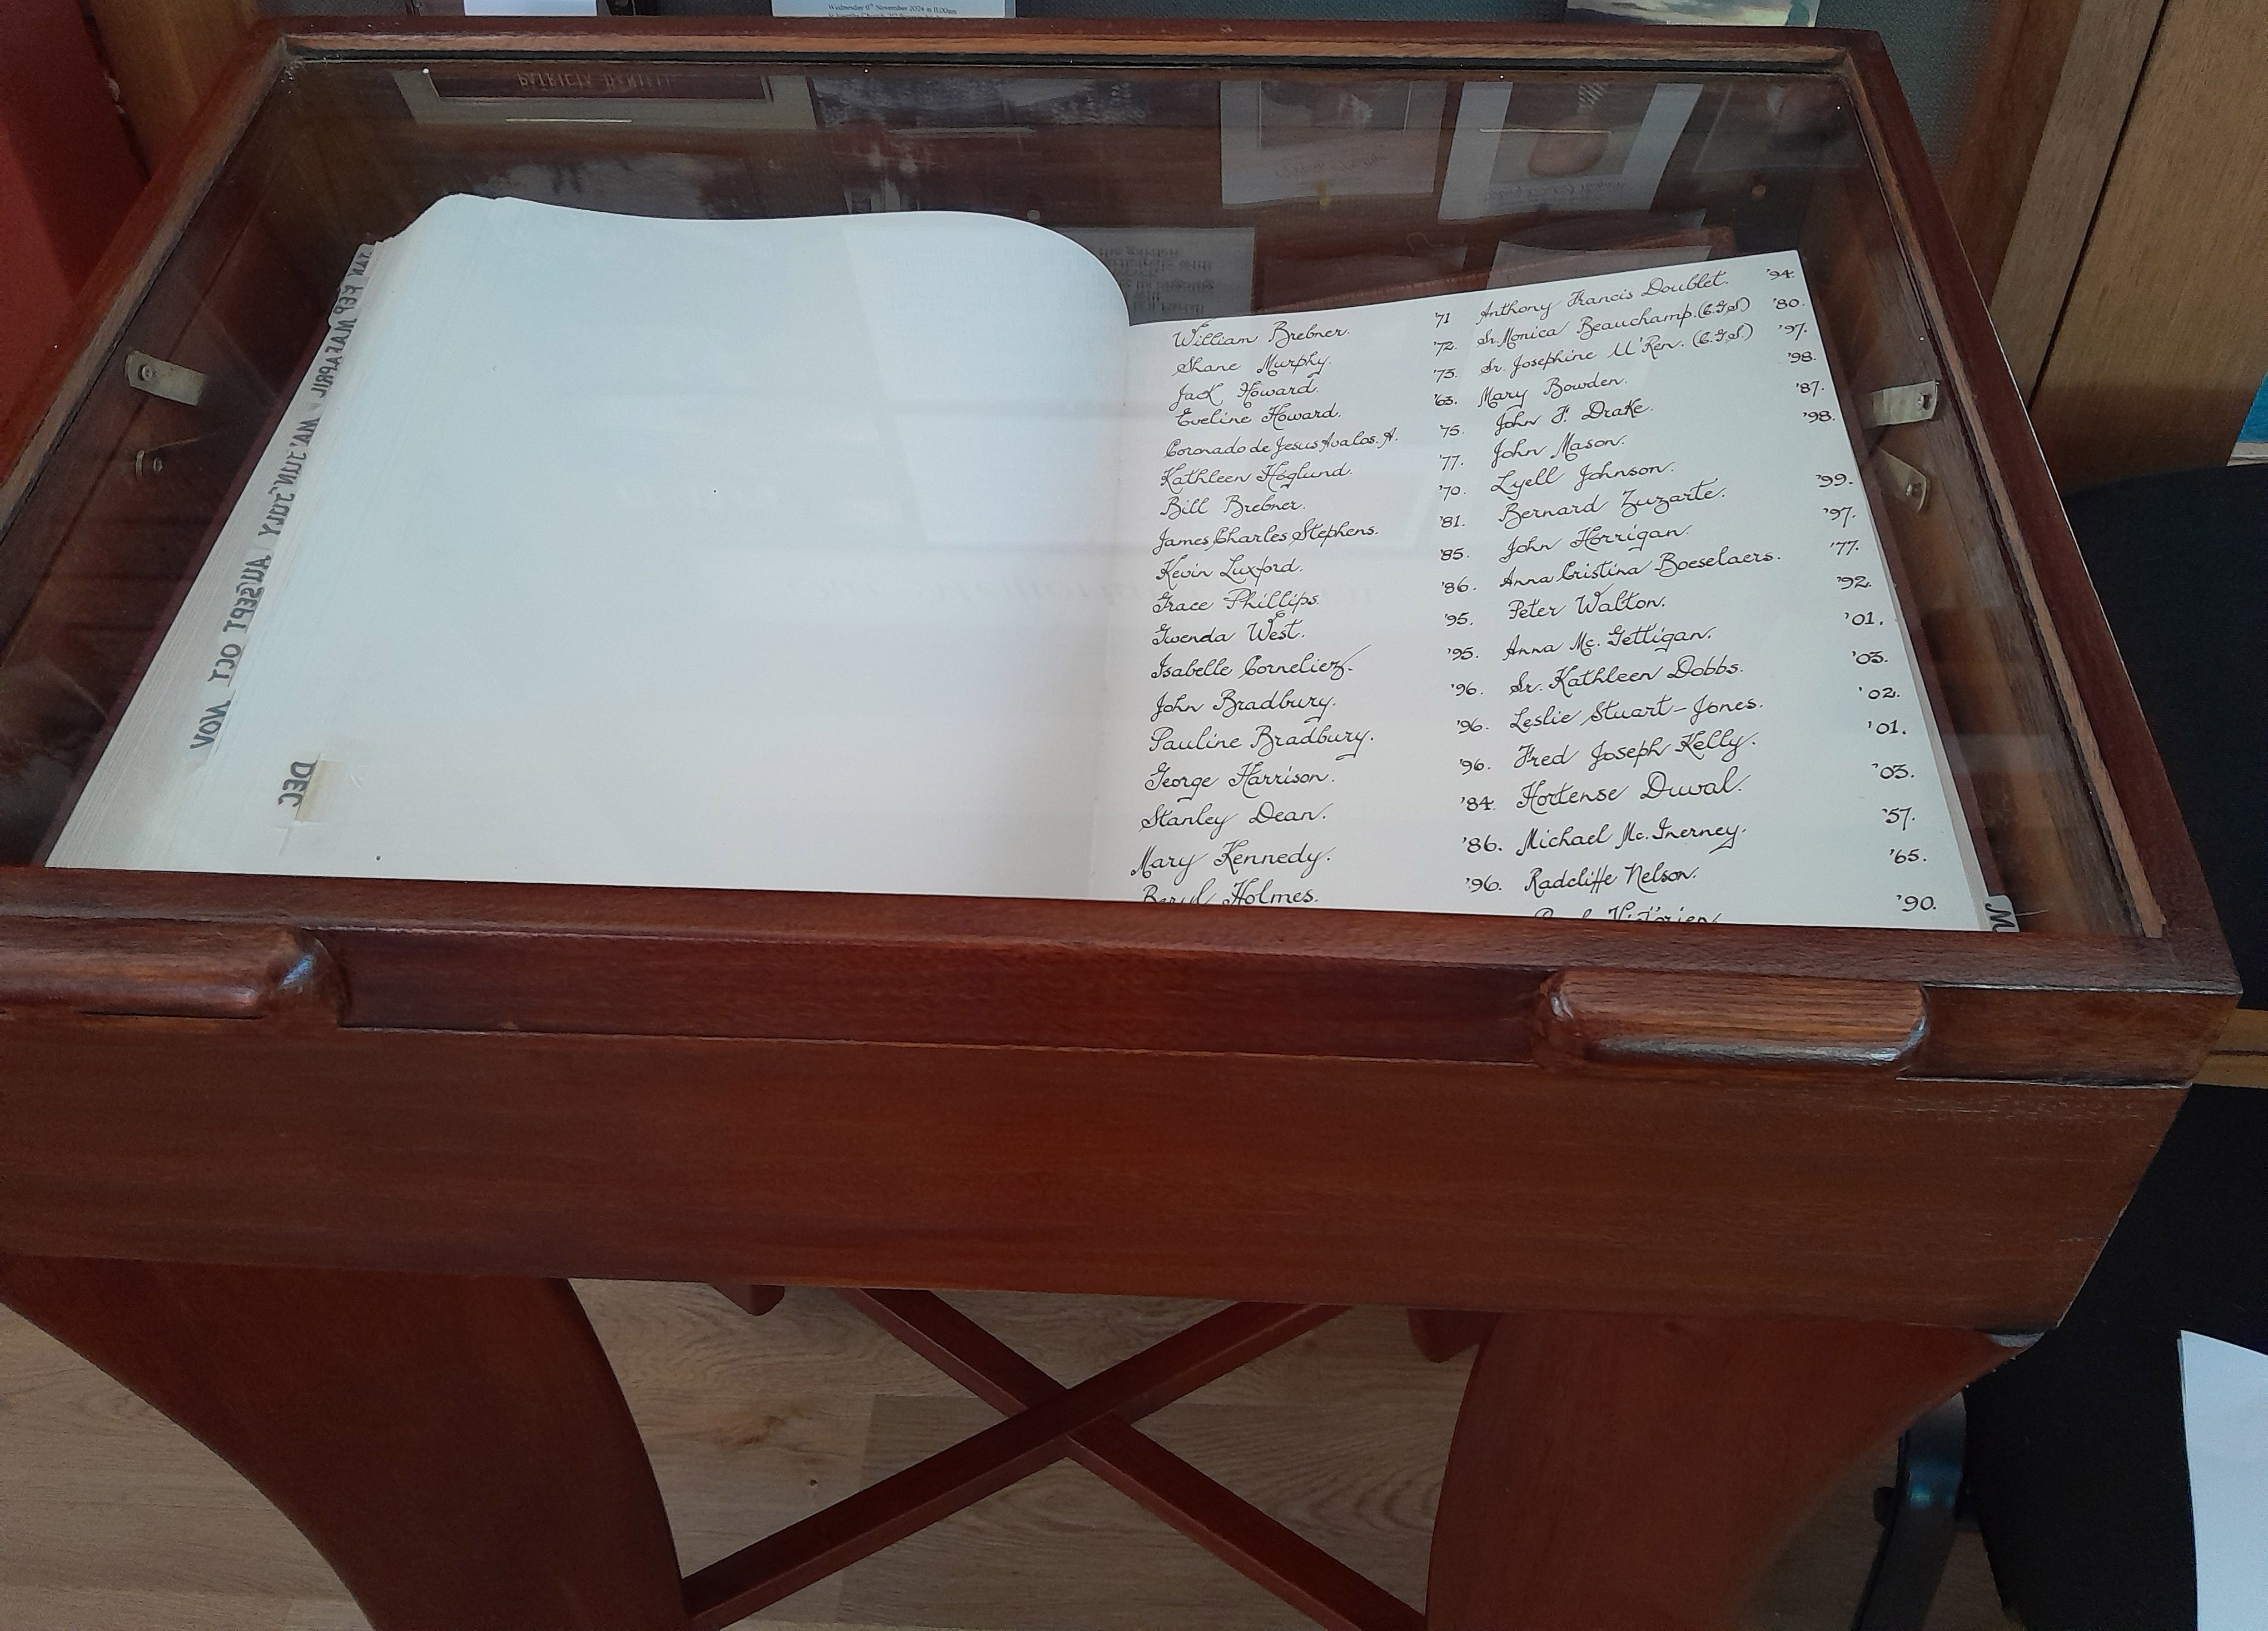 Wednesday 6th November 2024 at 11.00am
PATRICIA DANIELL
JAN FEB MAR APRIL MAY JUN JULY AUG SEPT OCT NOV
DEC
William Brebner. '71
Shane Murphy. '72.
Jack Howard. '75.
Eveline Howard. '63.
Coronado de Jesus Avalos. A. '75.
Kathleen Hoglund. '77.
Bill Brebner. '70.
James Charles Stephens. '81.
Kevin Luxford. '85.
Grace Phillips. '86.
Gwenda West. '95.
Isabelle Corneliez. '95.
John Bradbury. '96.
Pauline Bradbury. '96.
George Harrison. '96.
Stanley Dean. '84.
Mary Kennedy. '86.
Beryl Holmes. '96.
Anthony Francis Doublet. '94.
Sr. Monica Beauchamp. (C.G.S) '80.
Sr. Josephine U'Ren. (C.G.S.) '97.
Mary Bowden. '98.
John F. Drake. '87.
John Mason. '98.
Lyell Johnson.
Bernard Zuzarte. '99.
John Horrigan. '97.
Anna Cristina Boeselaers. '77.
Peter Walton. '92.
Anna Mc. Gettigan. '01.
Sr. Kathleen Dobbs. '03.
Leslie Stuart-Jones. '02.
Fred Joseph Kelly. '01.
Hortense Duval. '03.
Michael Mc. Inerney. '57.
Radcliffe Nelson. '65.
Victorien. '90.